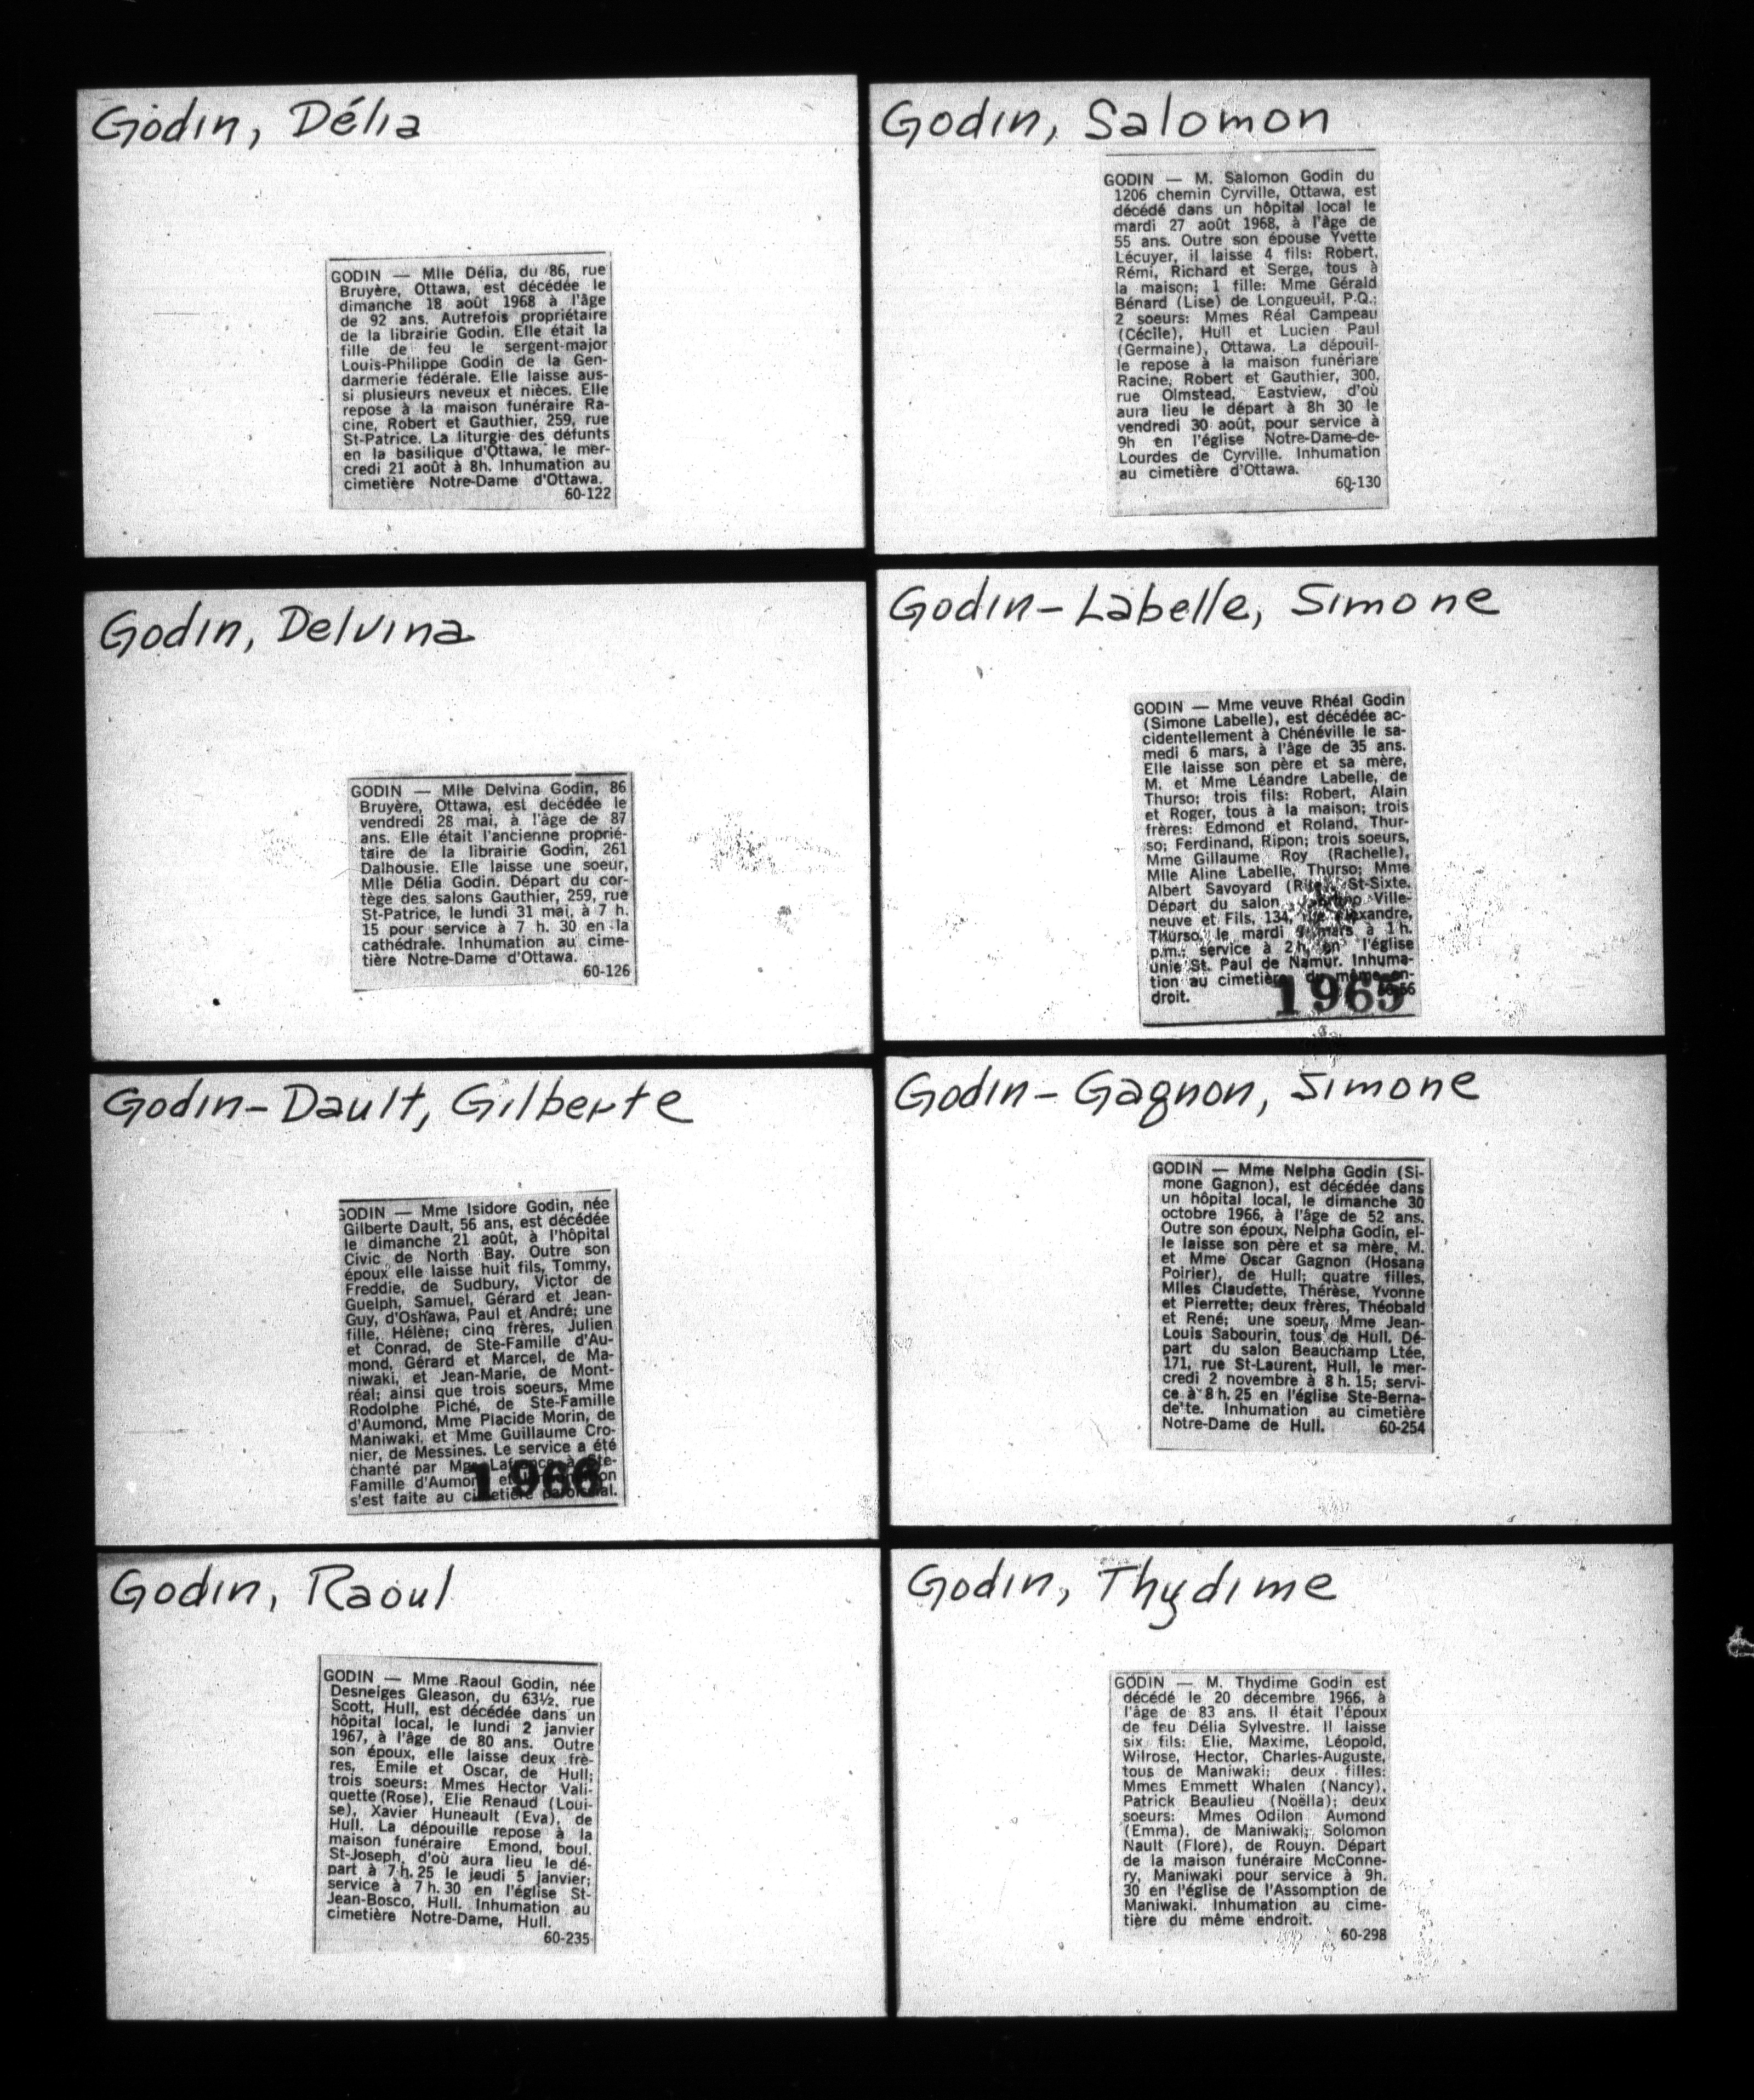 Godin, Délia
GODIN — Mlle Délia, du 86, rue
Bruyère, Ottawa, est décédée le
dimanche 18 août 1968 à l'âge
de 92 ans. Autrefois propriétaire
de la librairie Godin. Elle était la
fille de feu le sergent-major
Louis-Philippe Godin de la Gen-
darmerie fédérale. Elle laisse aus-
si plusieurs neveux et nièces. Elle
repose à la maison funéraire Ra-
cine, Robert et Gauthier, 259, rue
St-Patrice. La liturgie des défunts
en la basilique d'Ottawa, le mer-
credi 21 août à 8h. Inhumation au
cimetière Notre-Dame d'Ottawa.
60-122
Godin, Salomon
GODIN — M. Salomon Godin du
1206 chemin Cyrville, Ottawa, est
décédé dans un hôpital local le
mardi 27 août 1968, à l'âge de
55 ans. Outre son épouse Yvette
Lécuyer, il laisse 4 fils: Robert,
Rémi, Richard et Serge, tous à
la maison; 1 fille: Mme Gérald
Bénard (Lise) de Longueuil, P.Q.;
2 soeurs: Mmes Réal Campeau
(Cécile), Hull et Lucien Paul
(Germaine), Ottawa. La dépouil-
le repose à la maison funériare
Racine, Robert et Gauthier, 300,
rue Olmstead, Eastview, d'où
aura lieu le départ à 8h 30 le
vendredi 30 août, pour service à
9h en l'église Notre-Dame-de-
Lourdes de Cyrville. Inhumation
au cimetière d'Ottawa.
60-130
Godin, Delvina
GODIN — Mlle Delvina Godin, 86
Bruyère, Ottawa, est decédée le
vendredi 28 mai, à l'âge de 87
ans. Elle était l'ancienne proprié-
taire de la librairie Godin, 261
Dalhousie. Elle laisse une soeur,
Mlle Délia Godin. Départ du cor-
tège des salons Gauthier, 259, rue
St-Patrice, le lundi 31 mai, à 7 h.
15 pour service à 7 h. 30 en la
cathédrale. Inhumation au cime-
tière Notre-Dame d'Ottawa.
60-126
Godin-Labelle, Simone
GODIN — Mme veuve Rhéal Godin
(Simone Labelle), est décédée ac-
cidentellement à Chénéville le sa-
medi 6 mars, à l'âge de 35 ans.
Elle laisse son père et sa mère,
M. et Mme Léandre Labelle, de
Thurso; trois fils: Robert, Alain
et Roger, tous à la maison; trois
frères: Edmond et Roland, Thur-
so; Ferdinand, Ripon; trois soeurs,
Mme Gillaume Roy (Rachelle),
Mlle Aline Labelle, Thurso; Mme
Albert Savoyard St-Sixte.
Départ du salon Ville-
neuve et Fils, 134,
Thurso, le mardi mars à 1 h.
p.m.; service à 2 h. en l'église
unie St. Paul de Namur. Inhuma-
tion au cimetière du même en-
droit.
1965
Godin-Dault, Gilberte
GODIN — Mme Isidore Godin, née
Gilberte Dault, 56 ans, est décédée
le dimanche 21 août, à l'hôpital
Civic de North Bay. Outre son
époux elle laisse huit fils, Tommy,
Freddie, de Sudbury, Victor de
Guelph, Samuel, Gérard et Jean-
Guy, d'Oshawa, Paul et André; une
fille, Hélène; cinq frères, Julien
et Conrad, de Ste-Famille d'Au-
mond, Gérard et Marcel, de Ma-
niwaki, et Jean-Marie, de Mont-
réal; ainsi que trois soeurs, Mme
Rodolphe Piché, de Ste-Famille
d'Aumond, Mme Placide Morin, de
Maniwaki, et Mme Guillaume Cro-
nier, de Messines. Le service a été
chanté par Mgr Lafrance à Ste-
Famille d'Aumond et
s'est faite au cimetière paroissial.
1966
Godin-Gagnon, Simone
GODIN — Mme Nelpha Godin (Si-
mone Gagnon), est décédée dans
un hôpital local, le dimanche 30
octobre 1966, à l'âge de 52 ans.
Outre son époux, Nelpha Godin, el-
le laisse son père et sa mère, M.
et Mme Oscar Gagnon (Hosana
Poirier), de Hull; quatre filles,
Mlles Claudette, Thérèse, Yvonne
et Pierrette; deux frères, Théobald
et René; une soeur, Mme Jean-
Louis Sabourin, tous de Hull. Dé-
part du salon Beauchamp Ltée,
171, rue St-Laurent, Hull, le mer-
credi 2 novembre à 8 h. 15; servi-
ce à 8 h. 25 en l'église Ste-Berna-
dette. Inhumation au cimetière
Notre-Dame de Hull. 60-254
Godin, Raoul
GODIN — Mme Raoul Godin, née
Desneiges Gleason, du 63½, rue
Scott, Hull, est décédée dans un
hôpital local, le lundi 2 janvier
1967, à l'âge de 80 ans. Outre
son époux, elle laisse deux frè-
res, Emile et Oscar, de Hull;
trois soeurs: Mmes Hector Vali-
quette (Rose), Elie Renaud (Loui-
se), Xavier Huneault (Eva), de
Hull. La dépouille repose à la
maison funéraire Emond, boul.
St-Joseph, d'où aura lieu le dé-
part à 7 h. 25 le jeudi 5 janvier;
service à 7 h. 30 en l'église St-
Jean-Bosco, Hull. Inhumation au
cimetière Notre-Dame, Hull.
60-235
Godin, Thydime
GODIN — M. Thydime Godin est
décédé le 20 décembre 1966, à
l'âge de 83 ans. Il était l'époux
de feu Délia Sylvestre. Il laisse
six fils: Elie, Maxime, Léopold,
Wilrose, Hector, Charles-Auguste,
tous de Maniwaki; deux filles:
Mmes Emmett Whalen (Nancy),
Patrick Beaulieu (Noëlla); deux
soeurs: Mmes Odilon Aumond
(Emma), de Maniwaki; Solomon
Nault (Flore), de Rouyn. Départ
de la maison funéraire McConne-
ry, Maniwaki pour service à 9h.
30 en l'église de l'Assomption de
Maniwaki. Inhumation au cime-
tière du même endroit.
60-298